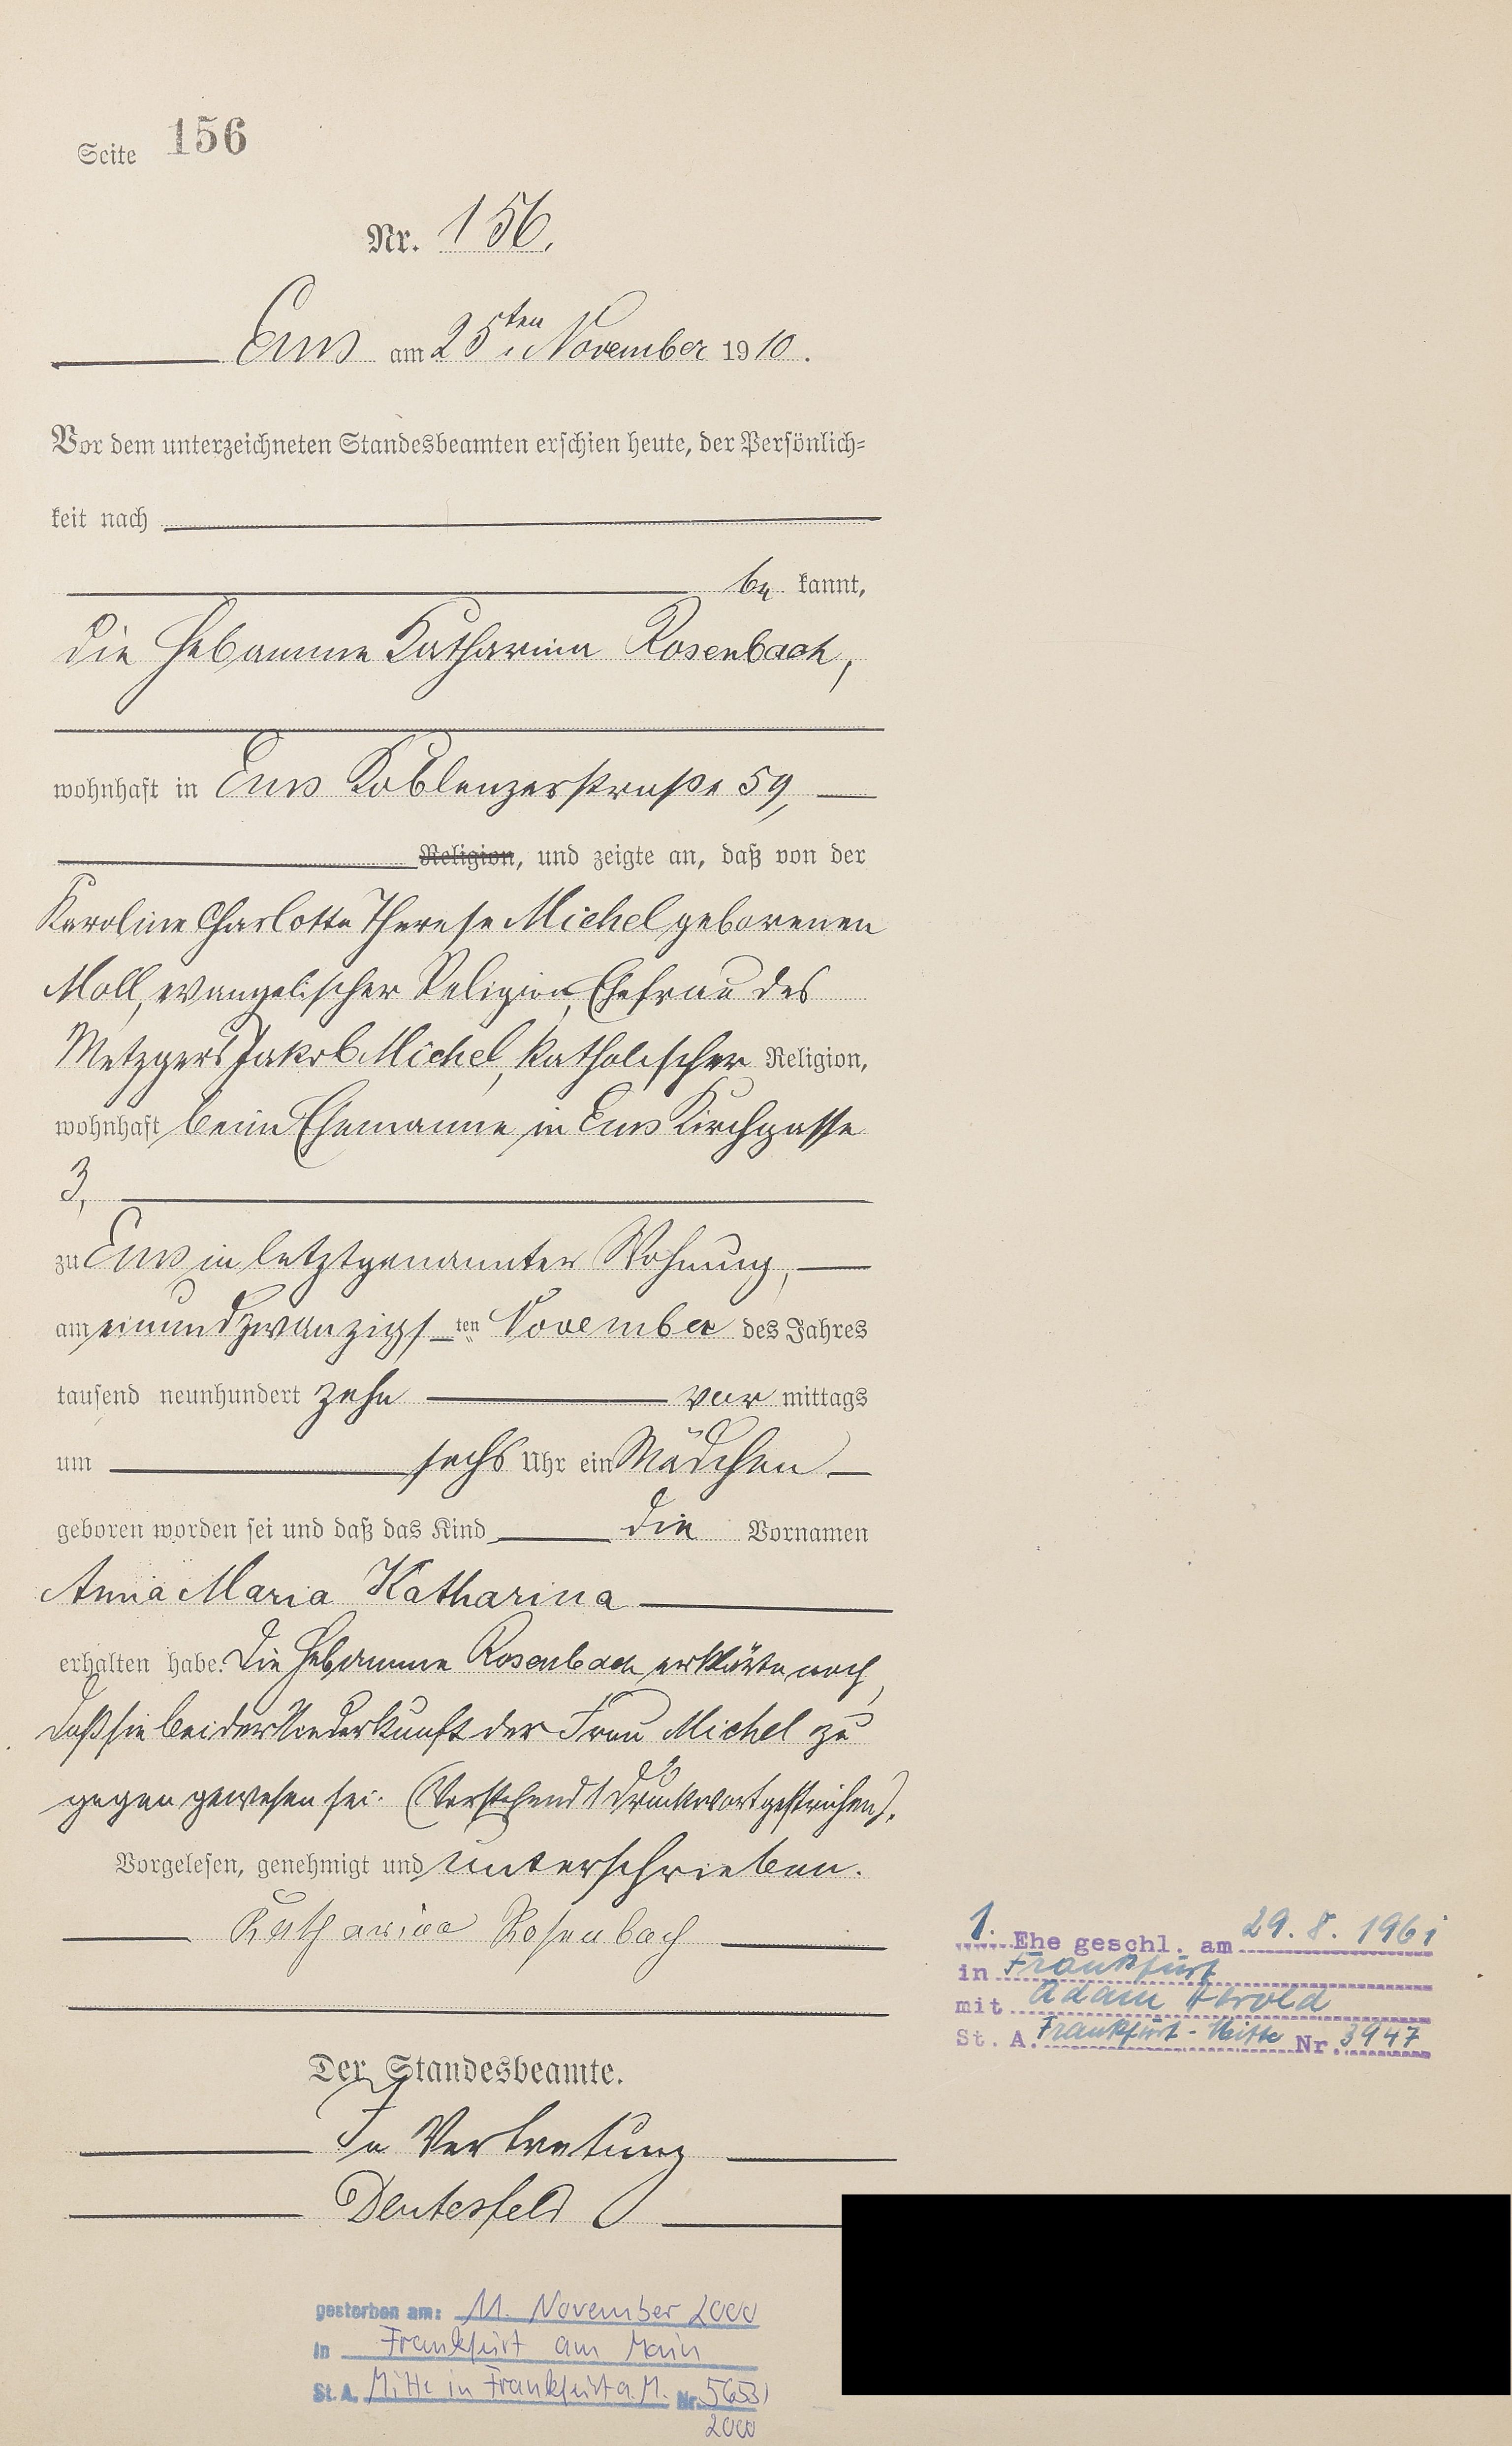 Seite 156
Nr. 156.
Ems am 25ten November 1910.
Vor dem unterzeichneten Standesbeamten erschien heute, der Persönlich-
keit nach
be kannt,
die Hebamme Katharina Rosenbach,
wohnhaft in Ems Koblenzerstraße 59,
Religion, und zeigte an, daß von der
Karoline Charlotte Therese Michel geborenen
Moll, evangelischer Religion, Ehefrau des
Metzgers Jakob Michel, katholischer Religion,
wohnhaft beim Ehemanne in Ems Kirchgasse
3,
zu Ems in letztgenannter Wohnung,
am einundzwanzigs ten November des Jahres
tausend neunhundert zehn vor mittags
um sechs Uhr ein Mädchen
geboren worden sei und daß das Kind die Vornamen
Anna Maria Katharina
erhalten habe. Die Hebamme Rosenbach erklärte noch,
daß sie bei der Niederkunft der Frau Michel zu
gegen gewesen sei. (Vorstehend 1 Druckwort gestrichen).
Vorgelesen, genehmigt und unterschrieben.
Katharina Rosenbach
1. Ehe geschl. am 29.8.1961
in Frankfurt
mit Adam
St. A. Frankfurt-Mitte Nr. 3947
Der Standesbeamte.
In Vertretung
gestorben am: 11. November 2000
in Frankfurt am Main
St. A. Mitte in Frankfurt a. M. Nr. 5653/
2000